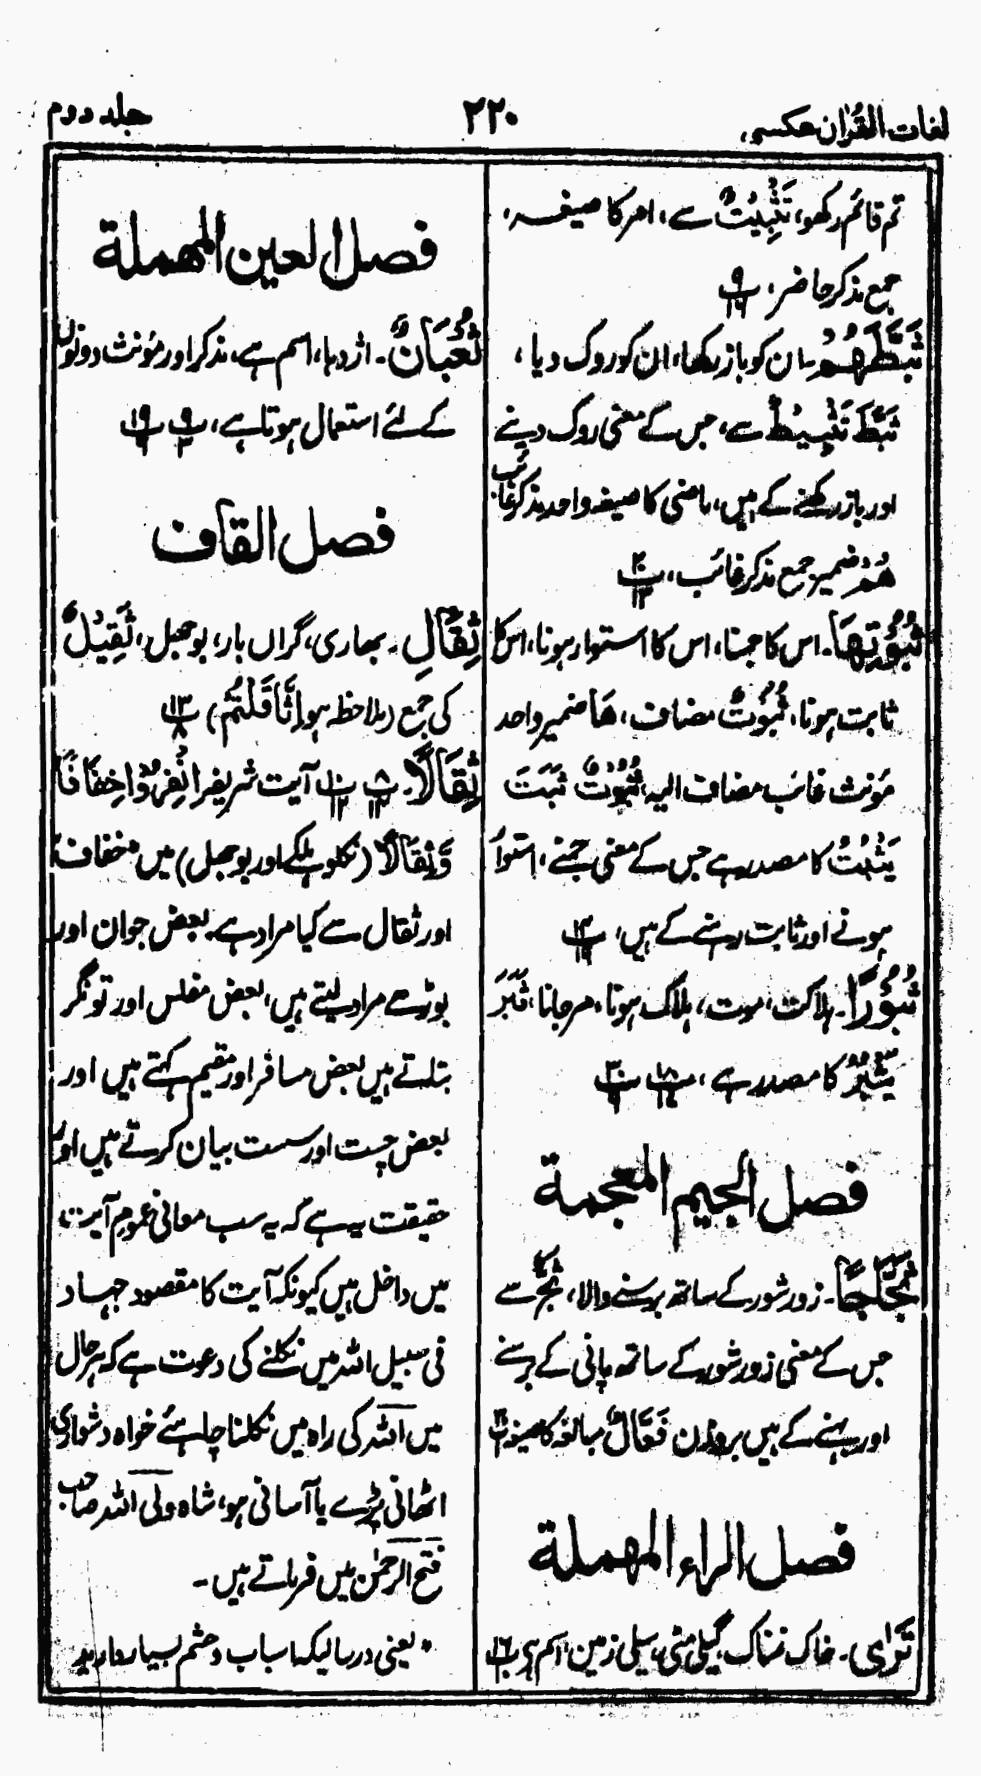 لغات القرآن عکسی
۲۲۰
جلد دوم
تم قائم رکھو، تَثْبِیْتٌ سے، امر کا صیغہ،
جمع مذکر حاضر، پ ۹
ثَبَّطَهُمْ۔ ان کو باز رکھا، ان کو روک دیا،
ثَبَّطَ تَثْبِیْطٌ سے، جس کے معنی روک دینے
اور باز رکھنے کے ہیں، ماضی کا صیغہ واحد مذکر غائب
هُمْ ضمیر جمع مذکر غائب، پ
ثُبُوْتِهَا۔ اس کا جمنا، اس کا استوار ہونا، اس کا
ثابت ہونا، ثُبُوْتٌ مضاف، هَا ضمیر واحد
مؤنث غائب مضاف الیہ، ثُبُوْتٌ ثَبَتَ
یَثْبُتُ کا مصدر ہے جس کے معنی جمنے، استوار
ہونے اور ثابت رہنے کے ہیں، پ ۱۴
ثُبُوْرًا۔ ہلاکت، موت، ہلاک ہونا، مرجانا، ثَبَرَ
یَثْبُرُ کا مصدر ہے، پ ۱۸ پ ۳۰
فصل الجیم المعجمة
ثَجَّاجًا۔ زور شور کے ساتھ برسنے والا، ثَجٌّ سے
جس کے معنی زور شور کے ساتھ پانی کے برسنے
اور بہنے کے ہیں بروزن فَعَّالٌ مبالغہ کا صیغہ
فصل الراء المهملة
ثَرٰی۔ خاک نمناک، گیلی مٹی، سیلی زمین، اسم ہے پ ۱۶
فصل العین المهملة
ثُعْبَانٌ۔ اژدہا، اسم ہے، مذکر اور مؤنث دونوں
کے لئے استعمال ہوتا ہے، پ ۹ پ ۱۹
فصل القاف
ثِقَالِ۔ بھاری، گراں بار، بوجھل، ثَقِیْلٌ
کی جمع (ملاحظہ ہو اِثَّاقَلْتُمْ) پ ۱۳
ثِقَالًا۔ پ ۸ پ ۱۰ آیت شریفہ اِنْفِرُوْا خِفَافًا
وَّثِقَالًا (نکلو ہلکے اور بوجھل) میں خفاف
اور ثقال سے کیا مراد ہے۔ بعض جوان اور
بوڑھے مراد لیتے ہیں، بعض مفلس اور تونگر
بتلاتے ہیں بعض مسافر اور مقیم کہتے ہیں اور
بعض چست اور سست بیان کرتے ہیں اور
حقیقت یہ ہے کہ یہ سب معانی عموم آیت
میں داخل ہیں کیونکہ آیت کا مقصود جہاد
فی سبیل اللہ میں نکلنے کی دعوت ہے کہ ہر حال
میں اللہ کی راہ میں نکلنا چاہئے خواہ دشواری
اٹھانی پڑے یا آسانی ہو، شاہ ولی اللہ صاحب
فتح الرحمٰن میں فرماتے ہیں۔
یعنی درحالیکہ اسباب و حشم بسیار دارید